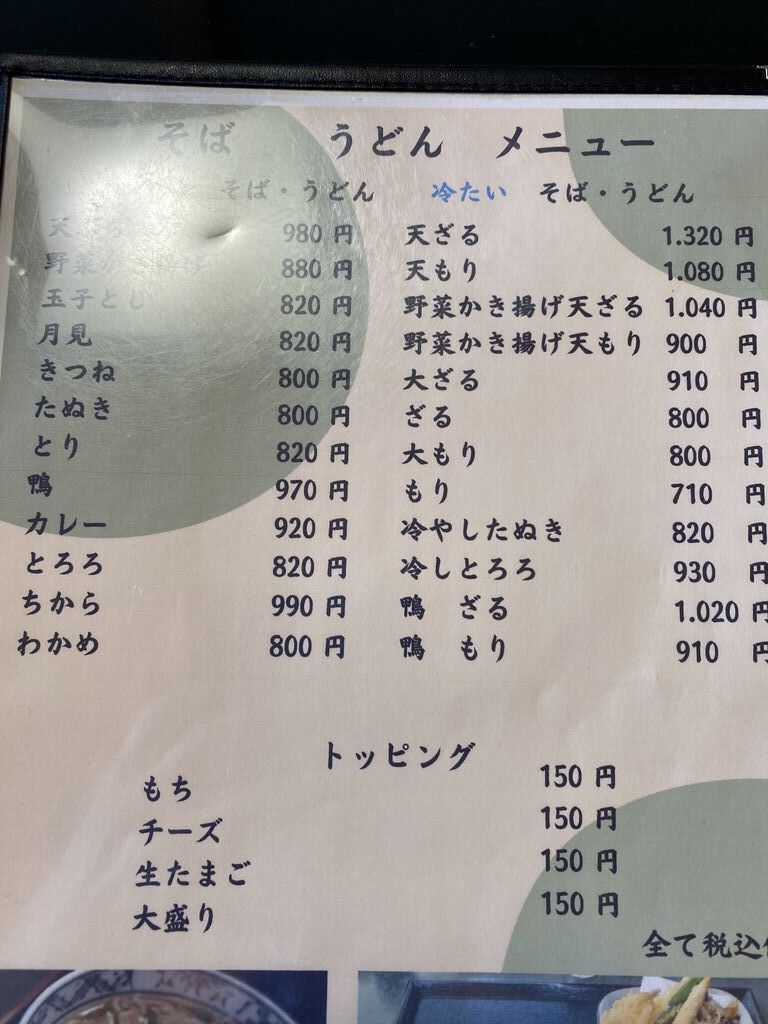 そば うどん メニュー
そば・うどん
天
980 円
野菜か
880 円
玉子とじ 820 円
月見 820 円
きつね 800 円
たぬき 800 円
とり 820 円
鴨 970 円
カレー 920 円
とろろ 820 円
ちから 990 円
わかめ 800 円
冷たい そば・うどん
天ざる 1.320 円
天もり 1.080 円
野菜かき揚げ天ざる 1.040 円
野菜かき揚げ天もり 900 円
大ざる 910 円
ざる 800 円
大もり 800 円
もり 710 円
冷やしたぬき 820 円
冷しとろろ 930 円
鴨 ざる 1.020 円
鴨 もり 910 円
トッピング
もち 150 円
チーズ 150 円
生たまご 150 円
大盛り 150 円
全て税込